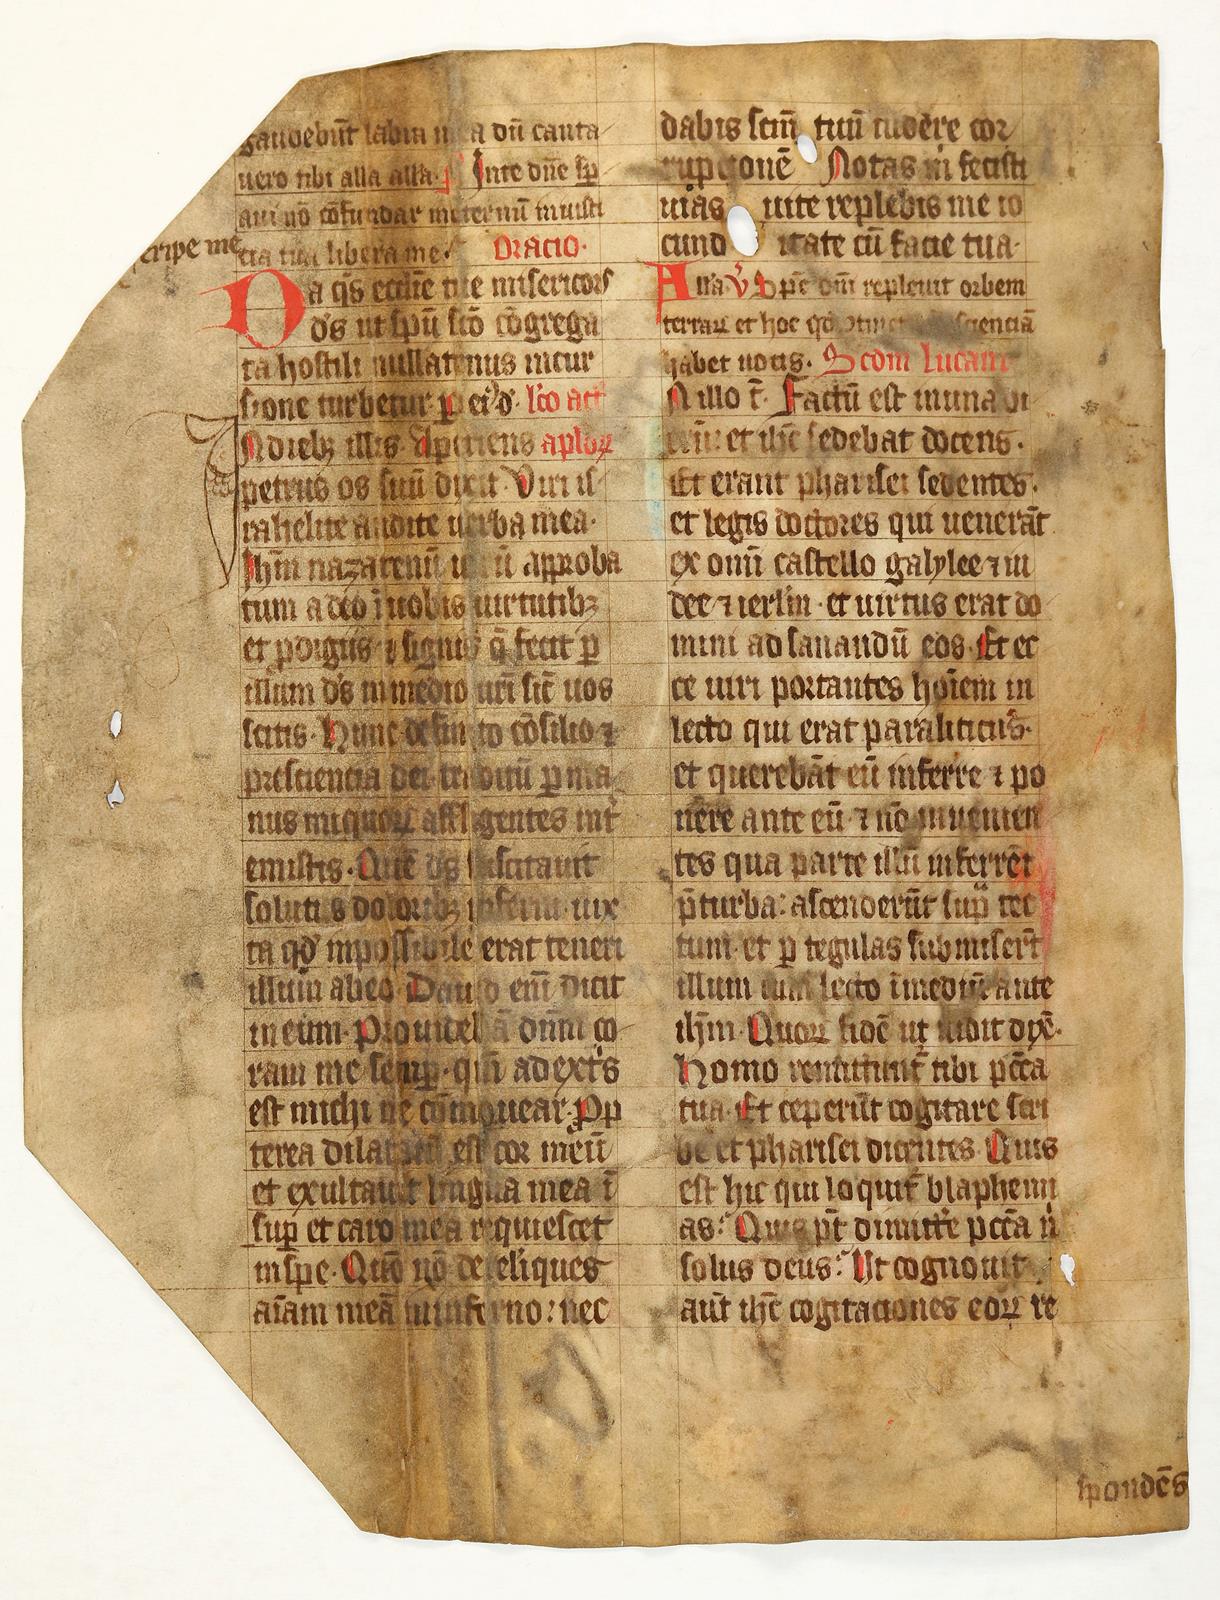 gaudebūt labia mea dū canta
uero tibi alla alla. Inte dn̄e sp̄
aui nō cōfundar ineternū iniusti
cia tua libera me. Oracio.
eripe me
Da q̄s eccl̄ie tue misericors
ds̄ ut sp̄u sc̄o cōgrega
ta hostili nullatenus incur
sione turbetur p ei d. lc̄o act
Indieb; illis. Aperiens aplor̄
petrus os suū dixit. Viri is
rahelite audite uerba mea.
Ih̄m nazarenū uirū approba
tum a deo ī uobis uirtutib;
et p̄digiis ⁊ signis q̄ fecit p
illum ds̄ in medio ur̄i sic̄ uos
scitis. Hunc definito cōsilio ⁊
presciencia dei traditū p ma
nus iniquor̄ affligentes int̄
emistis. Quē ds̄ suscitauit
solutis dolorib; inferni iux
ta qd̄ inpossibile erat teneri
illum abeo. Dauid em̄ dicit
in eum. Prouidebā dn̄m co
ram me semp. qm̄ adextˢs
est michi ne cōmouear. Pp
terea dilatatū est cor meū
et exultauit lingua mea ī
sup et caro mea requiescet
in spe. Qūo nō derelinques
aīam meā in inferno: nec
dabis sc̄m tuū uidere cor
rupcionē Notas m̄ fecisti
uias uite replebis me io
cund itate cū facie tua.
Alla. v̄ Sp̄c dn̄i repleuit orbem
terrar̄ et hoc qd̄ ɔtinet scienciā
habet uocis. Scdm Lucam
In illo t̄. Factū est in una di
erū: et ih̄c sedebat docens.
Et erant pharisei sedentes.
et legis doctores qui uenerāt
ex om̄i castello galylee ⁊ iu
dee ⁊ ierlm̄. et uirtus erat do
mini ad sanandū eos. Et ec
ce uiri portantes hoīem in
lecto qui erat paraliticus.
et querebāt eū inferre ⁊ po
nere ante eū. ⁊ nō inuenien
tes qua parte illū inferrēt
p̄ turba: ascenderūt sup̄ tec
tum. et p tegulas submiserūt
illum cum lecto ī mediū ante
ih̄m. Quor̄ fidē ut uidit dixͭ.
Homo remittunt̄ tibi pcc̄a
tua. Et ceperūt cogitare scri
be et pharisei dicentes. Quis
est hic qui loquit̄ blaphemi
as: Quis pt̄ dimitt̄e pcc̄a n̄
solus deus: Ut cognouit
aut̄ ih̄c cogitaciones eor̄ re
spondēs